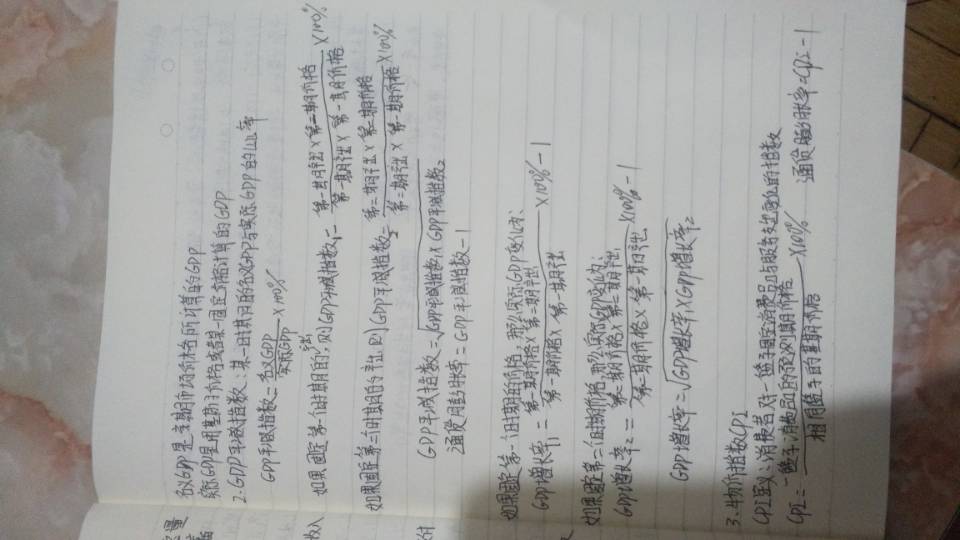 名义GDP是按当期市场价格所计算的GDP
实际GDP是用基期的价格或者某一固定价格计算的GDP
2. GDP平减指数：某一时期的名义GDP与实际GDP的比率
GDP平减指数=名义GDP/实际GDP×100%
如果固定第一个时期的产出,则GDP平减指数1=第一期产出×第二期价格/第一期产出×第一期价格×100%
如果固定第二个时期的产出,则GDP平减指数2=第二期产出×第二期价格/第二期产出×第一期价格×100%
GDP平减指数=√GDP平减指数1×GDP平减指数2
通货膨胀率=GDP平减指数-1
如果固定第一个时期的价格,那么实际GDP变化为:
GDP增长率1=第一期价格×第二期产出/第一期价格×第一期产出×100%-1
如果固定第二个时期价格,那么实际GDP变为:
GDP增长率2=第二期价格×第二期产出/第二期价格×第一期产出×100%-1
GDP增长率=√GDP增长率1×GDP增长率2
3. 物价指数CPI
CPI定义:消费者对一篮子固定消费品与服务支出价值的指数
CPI=一篮子消费品的所考察时期价格/相同篮子的基期价格×100% 通货膨胀率=CPI-1
变量
收入